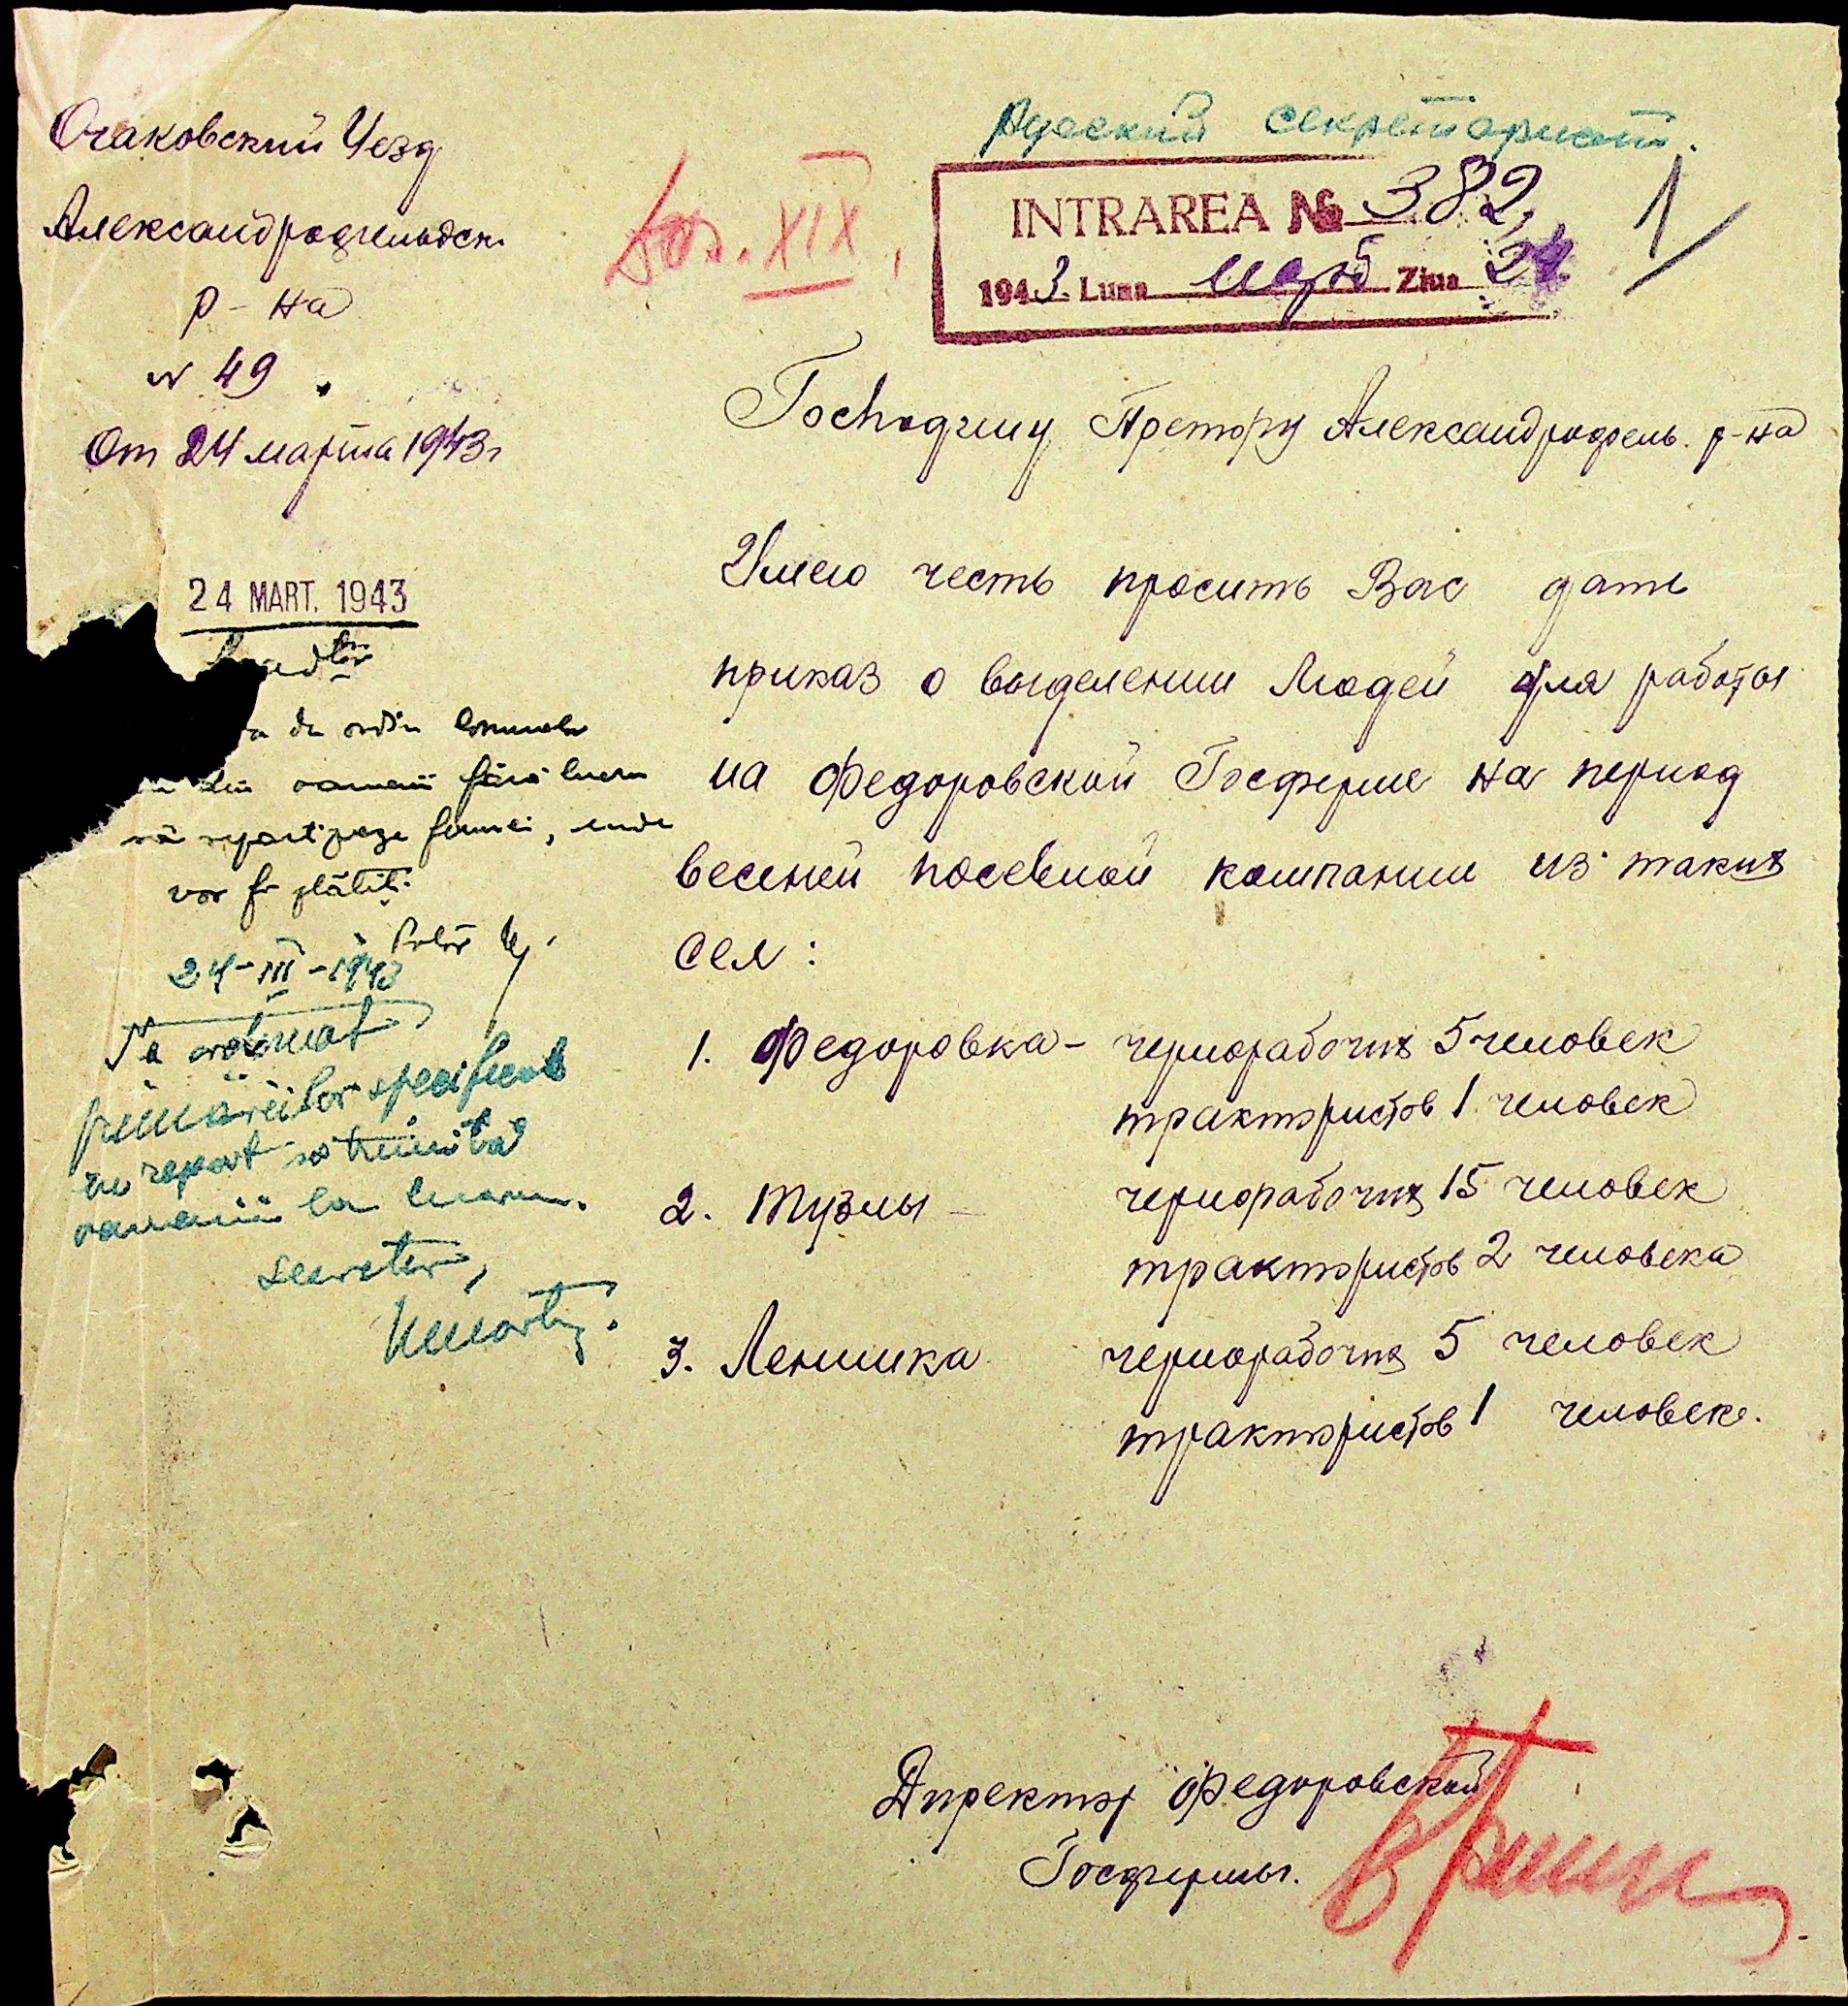 Очаковский Уезд
Александродфельдск.
р-на
№ 49
От 24 марта 1943г
Руский секретариат.
Dos. XIX,
INTRAREA № 382
1943 Luna март Ziua 24
1
Господину Претору Александродфель. р-на
Имею честь просить Вас дать
приказ о выделении Людей для работы
на Федоровской Госферме на период
весеней посевной компании из таких
сел:
1. Федоровка - чернорабочих 5 человек
трактористов 1 человек
2. Тузлы - чернорабочих 15 человек
трактористов 2 человека
3. Ленинка чернорабочих 5 человек
трактористов 1 человек.
Директор Федоровской
Госфермы.
24 MART. 1943
da ordin
oameni fără lucru
să repartizeze fermei, unde
vor fi plătiți.
Pretor
24-III-1943
S'a ordonat
primăriilor specificate
în raport să trimită
oamenii la lucru.
Secretar,